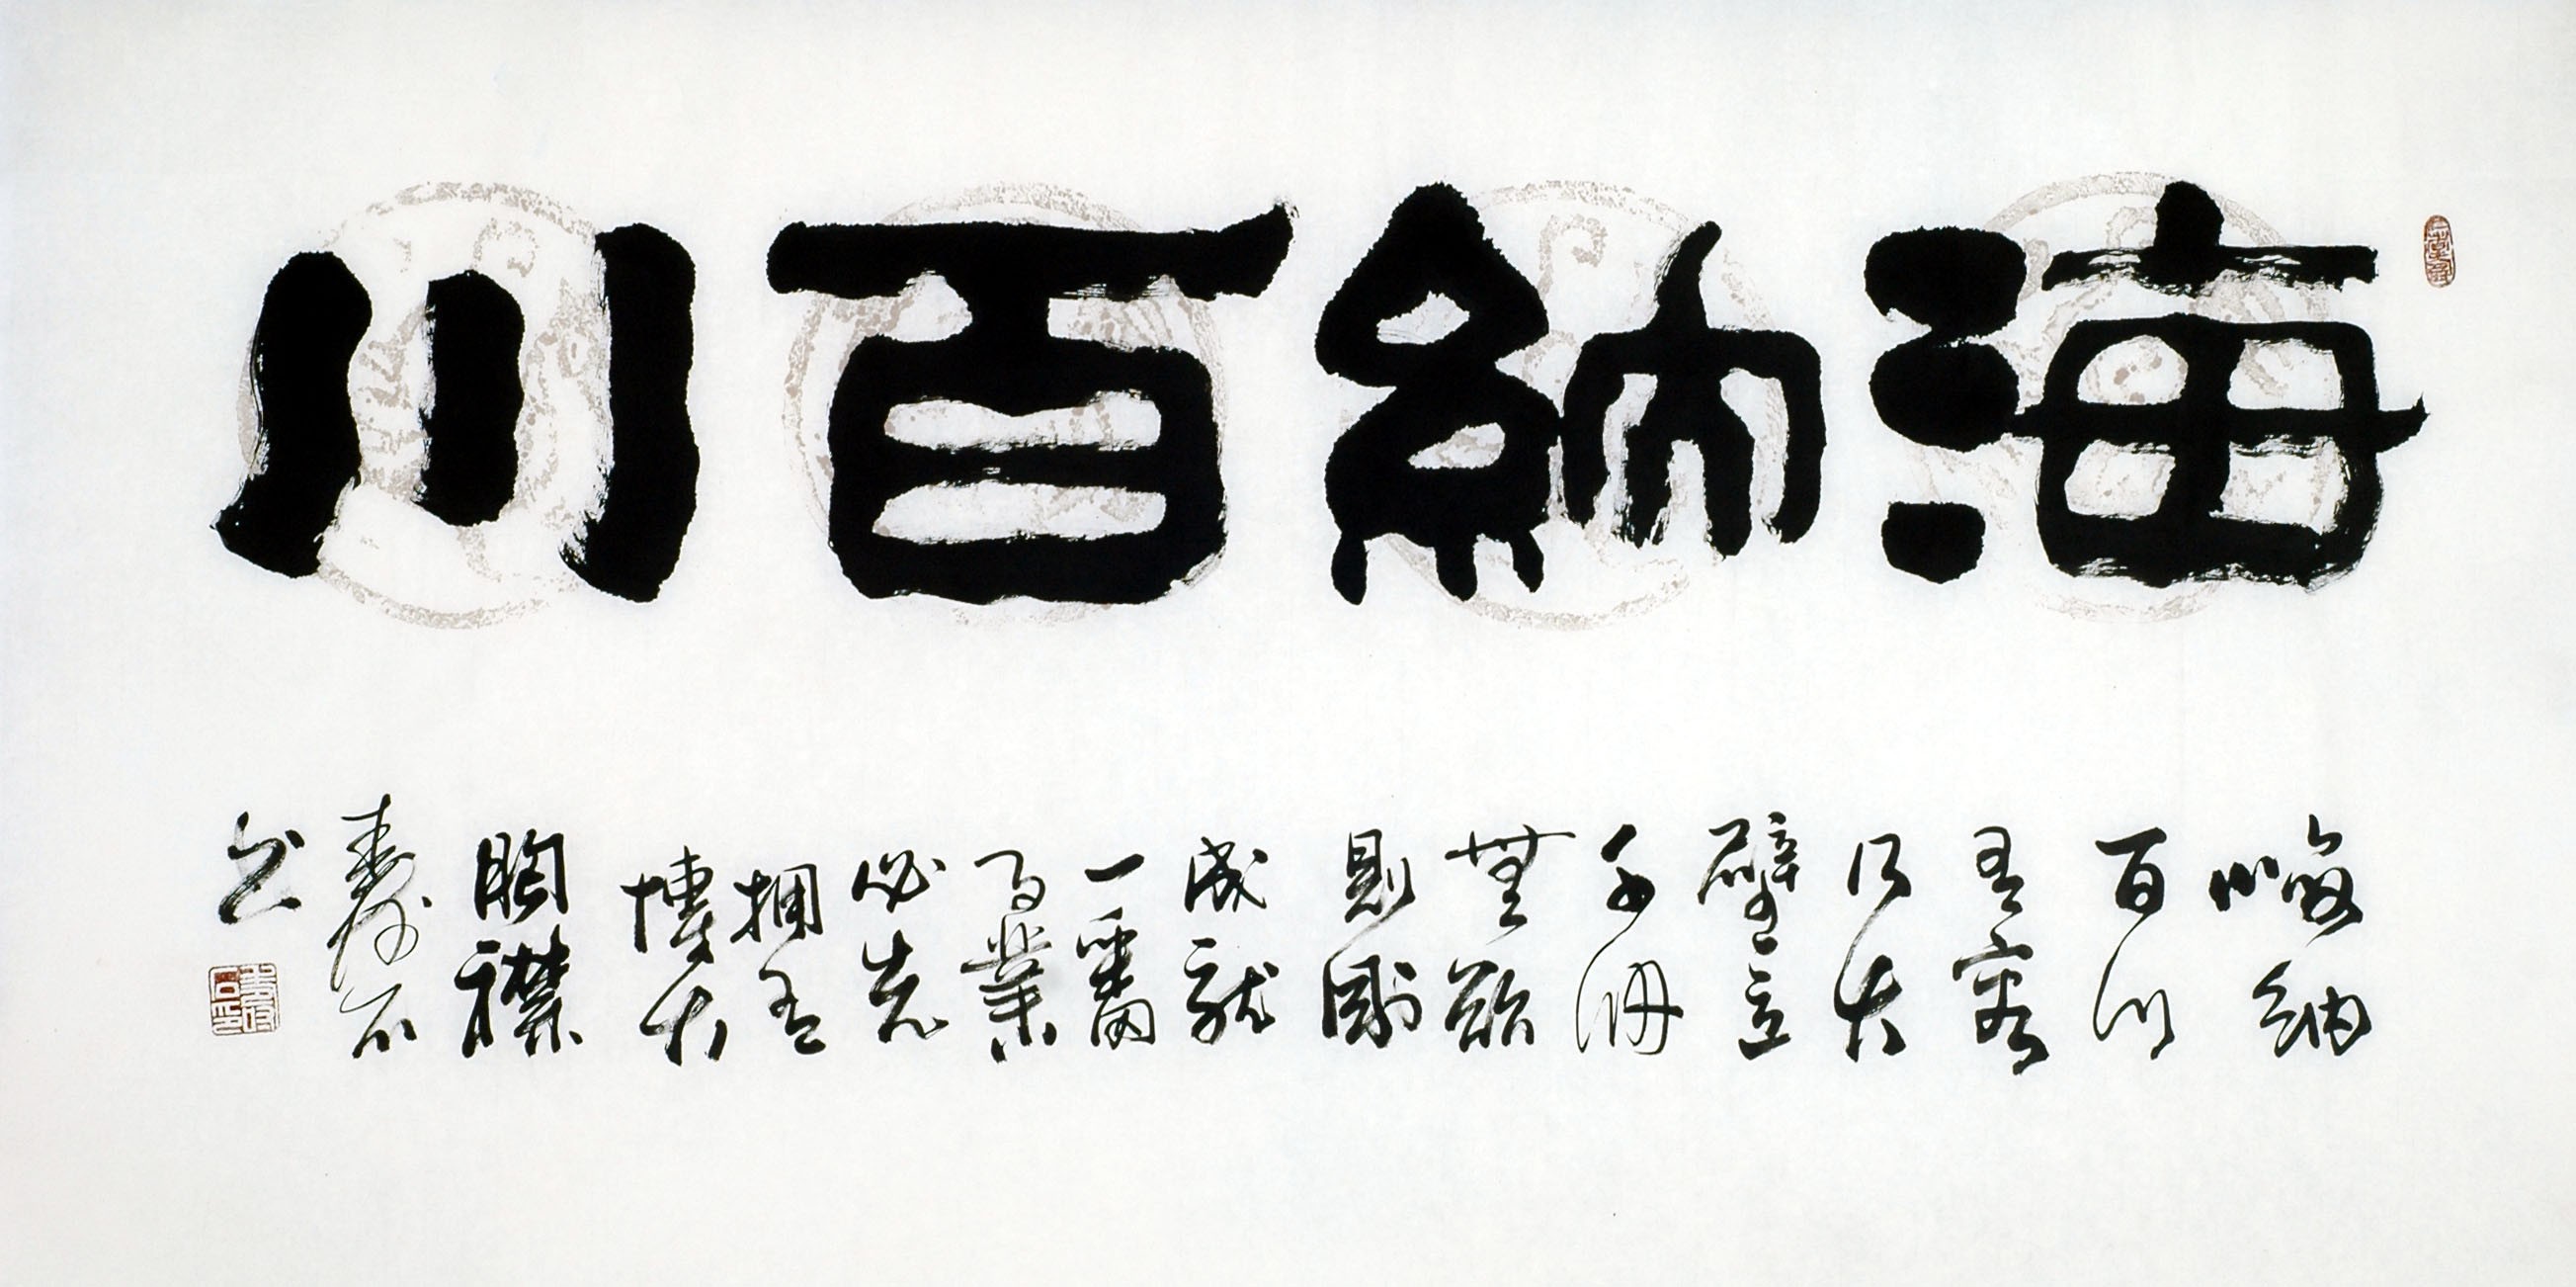 海納百川
海納
百川
有容
乃大
壁立
千仞
無欲
則剛
成就
一番
事業
必先
拥有
博大
胸襟
书